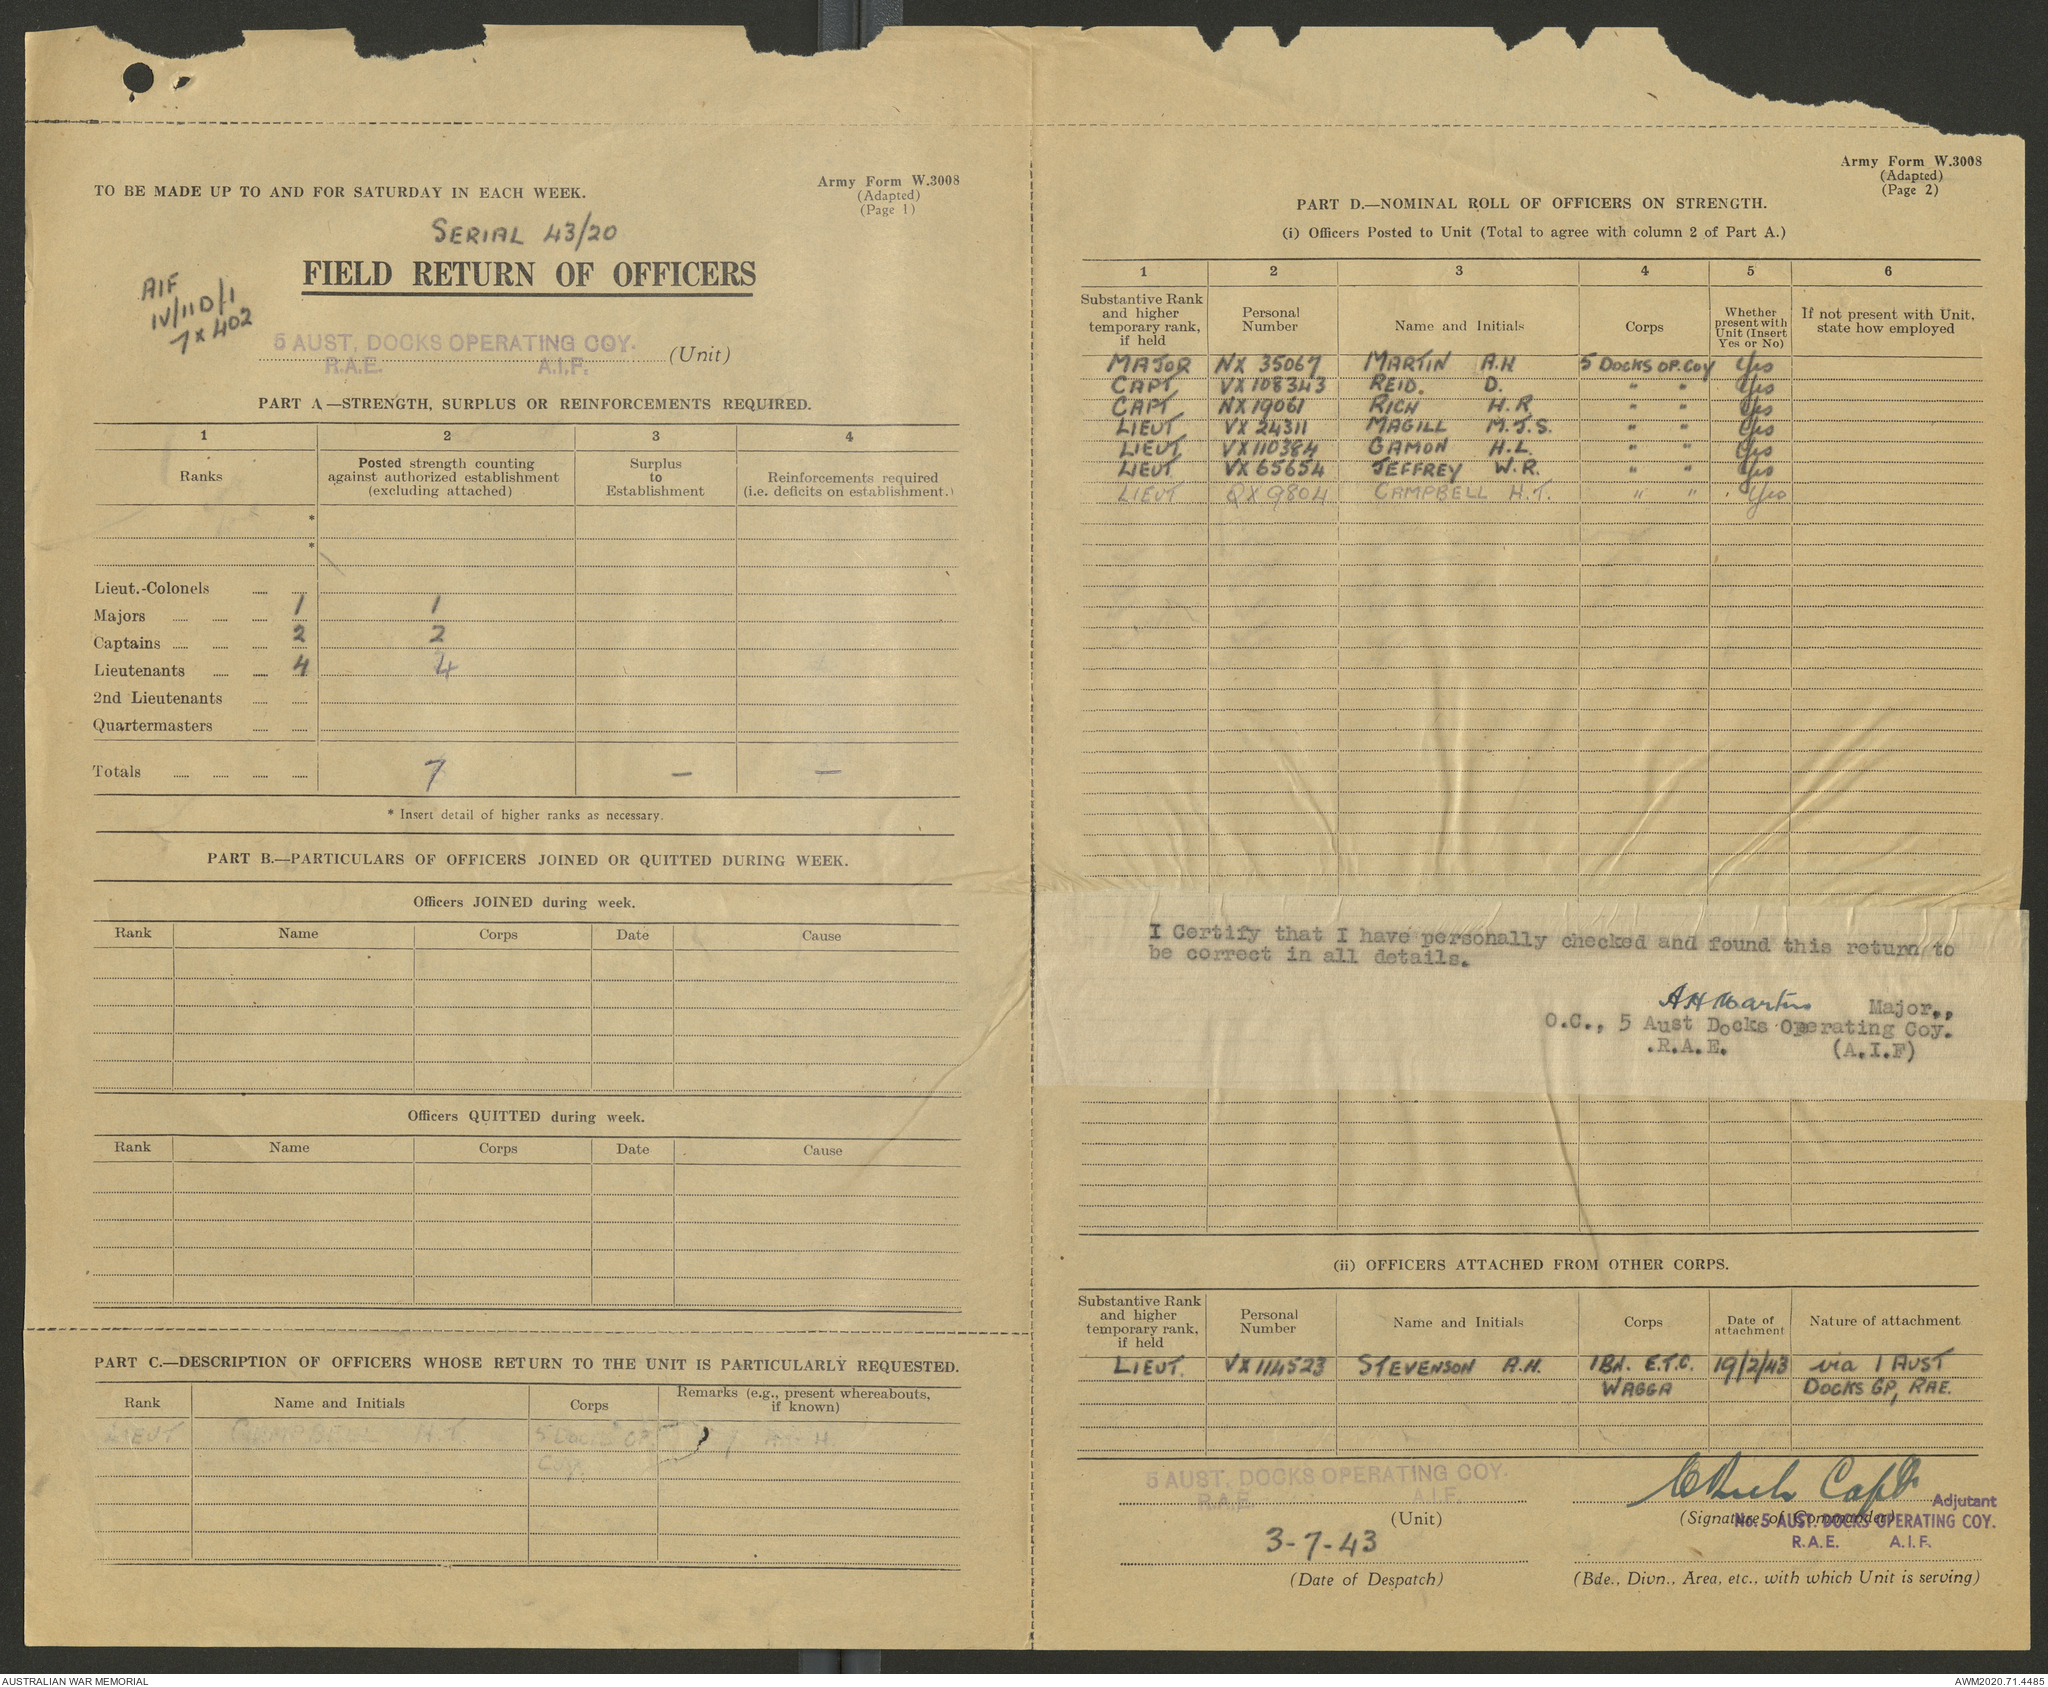 TO BE MADE UP TO AND FOR SATURDAY IN EACH WEEK.
Army Form W.3008
(Adapted)
(Page 1)
SERIAL 43/20
FIELD RETURN OF OFFICERS
AIF
IV/11D/1
7 x 402
5 AUST. DOCKS OPERATING COY.
R.A.E. A.I.F. (Unit)
PART A.—STRENGTH, SURPLUS OR REINFORCEMENTS REQUIRED.
1 2 3 4
Ranks
Posted strength counting
against authorized establishment
(excluding attached)
Surplus
to
Establishment
Reinforcements required
(i.e. deficits on establishment.)
*
*
Lieut.-Colonels
Majors 1 1
Captains 2 2
Lieutenants 4 4
2nd Lieutenants
Quartermasters
Totals 7 — —
* Insert detail of higher ranks as necessary.
PART B.—PARTICULARS OF OFFICERS JOINED OR QUITTED DURING WEEK.
Officers JOINED during week.
Rank Name Corps Date Cause
Officers QUITTED during week.
Rank Name Corps Date Cause
PART C.—DESCRIPTION OF OFFICERS WHOSE RETURN TO THE UNIT IS PARTICULARLY REQUESTED.
Rank Name and Initials Corps
Remarks (e.g., present whereabouts,
if known)
LIEUT CAMPBELL H.T. 5 DOCKS OP.
Coy.
Army Form W.3008
(Adapted)
(Page 2)
PART D.—NOMINAL ROLL OF OFFICERS ON STRENGTH.
(i) Officers Posted to Unit (Total to agree with column 2 of Part A.)
1 2 3 4 5 6
Substantive Rank
and higher
temporary rank,
if held
Personal
Number
Name and Initials
Corps
Whether
present with
Unit (Insert
Yes or No)
If not present with Unit,
state how employed
MAJOR NX 35067 MARTIN A.H 5 DOCKS OP. COY Yes
CAPT. VX108343 REID. D. " " Yes
CAPT NX19061 RICH H.R " " Yes
LIEUT VX 24311 MAGILL M.J.S. " " Yes
LIEUT VX110384 GAMON H.L. " " Yes
LIEUT VX65654 JEFFREY W.R. " " Yes
LIEUT QX9804 CAMPBELL H.T. " " Yes
I Certify that I have personally checked and found this return to
be correct in all details.
A H Martin Major.,
O.C., 5 Aust Docks Operating Coy.
.R.A.E. (A.I.F)
(ii) OFFICERS ATTACHED FROM OTHER CORPS.
Substantive Rank
and higher
temporary rank,
if held
Personal
Number
Name and Initials
Corps
Date of
attachment
Nature of attachment
LIEUT. VX114523 STEVENSON A.H. 1 BN. E.T.C. 19/2/43 via 1 AUST
WAGGA DOCKS GP, RAE.
5 AUST. DOCKS OPERATING COY.
R.A.E. A.I.F.
(Unit)
Capt
Adjutant
(Signature of Commander)
No. 5 AUST. DOCKS OPERATING COY.
R.A.E. A.I.F.
3-7-43
(Date of Despatch)
(Bde., Divn., Area, etc., with which Unit is serving)
AUSTRALIAN WAR MEMORIAL
AWM2020.71.4485